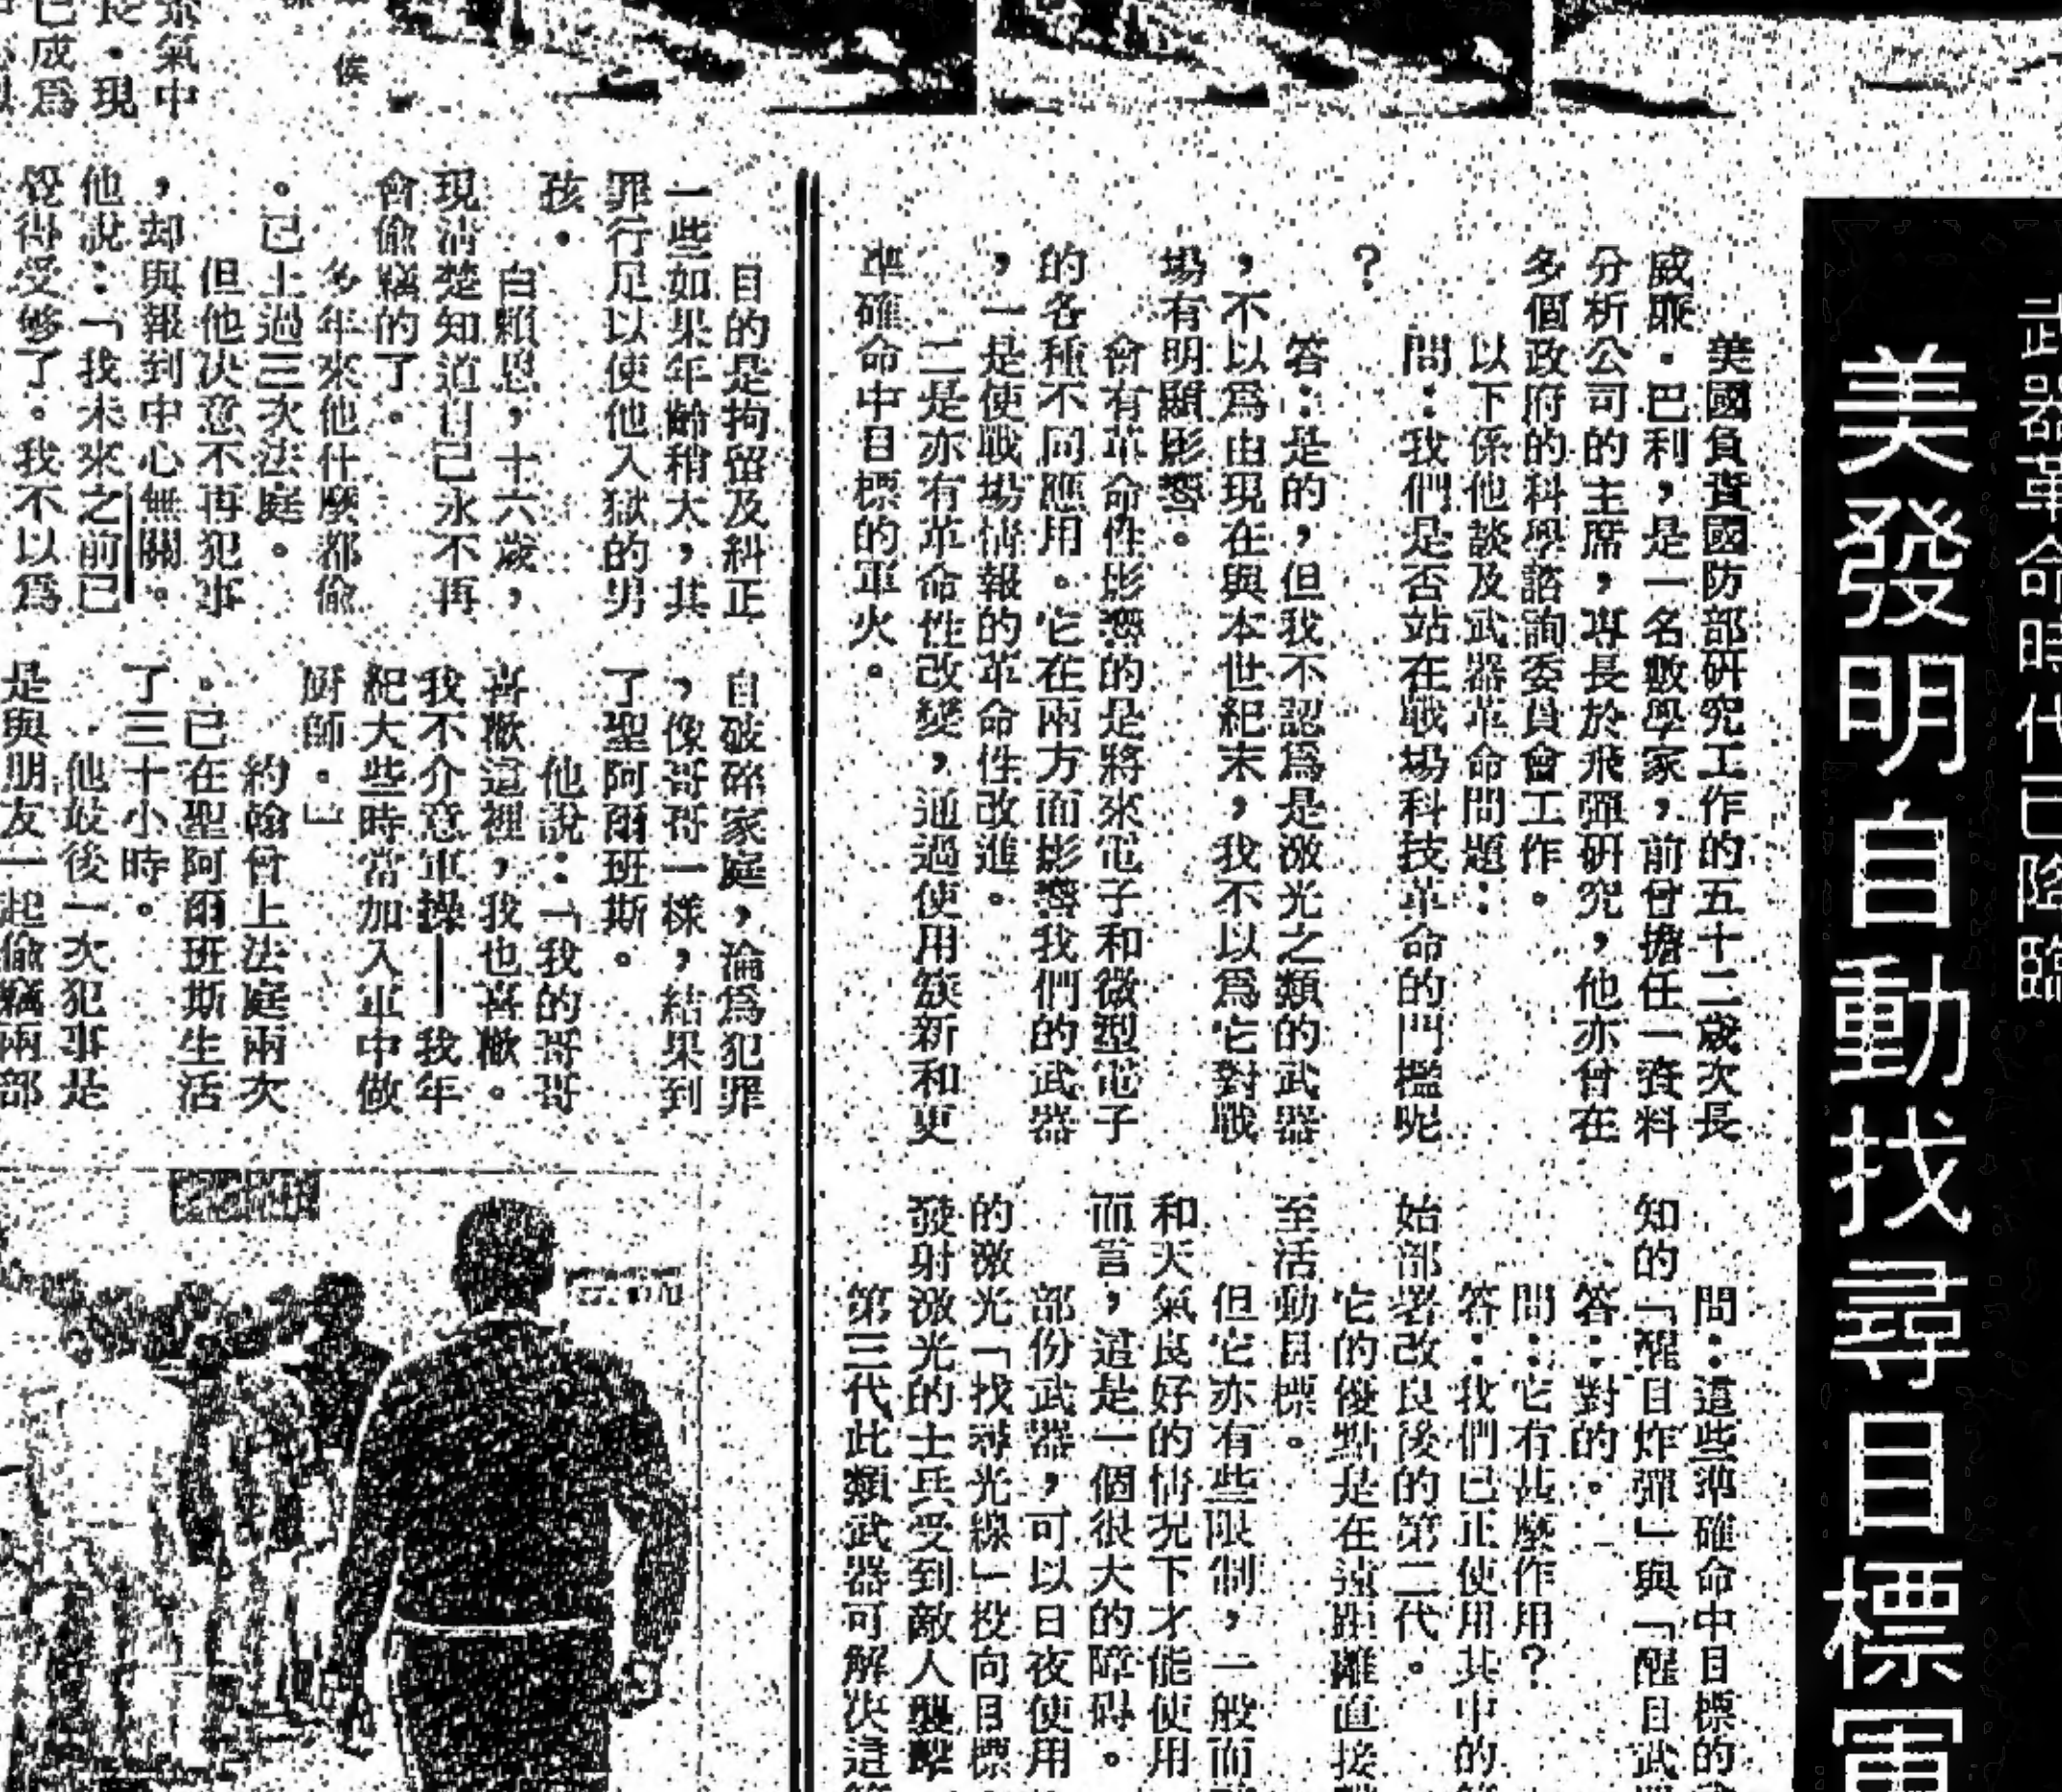 武器革命時代已降臨
美發明自動找尋目標軍
美國負責國防部研究工作的五十二歲次長
威廉・巴利，是一名數學家，前曾擔任一資料
分析公司的主席，專長於飛彈研究，他亦曾在
多個政府的科學諮詢委員會工作。
以下係他談及武器革命問題：
問：我們是否站在戰場科技革命的門檻呢
？
答：是的，但我不認爲是激光之類的武器
，不以爲由現在與本世紀末，我不以爲它對戰
場有明顯影響。
會有革命性影響的是將來電子和微型電子
的各種不同應用。它在兩方面影響我們的武器
，一是使戰場情報的革命性改進。
二是亦有革命性改變，通過使用簇新和更
準確命中目標的軍火。
問：這些準確命中目標的武
知的「醒目炸彈」與「醒目武器
答：對的。
問：它有甚麼作用？
答：我們已正使用其中的第
始部署改良後的第二代。
它的優點是在遠距離直接
至活動目標。
但它亦有些限制，一般而
和天氣良好的情況下才能使用
而言，這是一個很大的障碍。
部份武器，可以日夜使用
的激光「找尋光線」投向目標
發射激光的士兵受到敵人襲擊
第三代此類武器可解決這
目的是拘留及糾正
一些如果年齡稍大，其
罪行足以使他入獄的男
孩。
白賴恩，十六歲，
現清楚知道自己永不再
會偷竊的了。
多年來他什麼都偷
。已上過三次法庭。
但他決意不再犯事
，却與報到中心無關。
他說：「我未來之前已
覺得受够了。我不以爲
自破碎家庭，淪爲犯罪
，像哥哥一樣，結果到
了聖阿爾班斯。
他說：「我的哥哥
喜歡這裡，我也喜歡。
我不介意軍操——我年
紀大些時當加入軍中做
厨師。」
約翰曾上法庭兩次
。已在聖阿爾班斯生活
了三十小時。
他最後一次犯事是
是與朋友一起偷竊兩部
氣中
長・現
已成爲